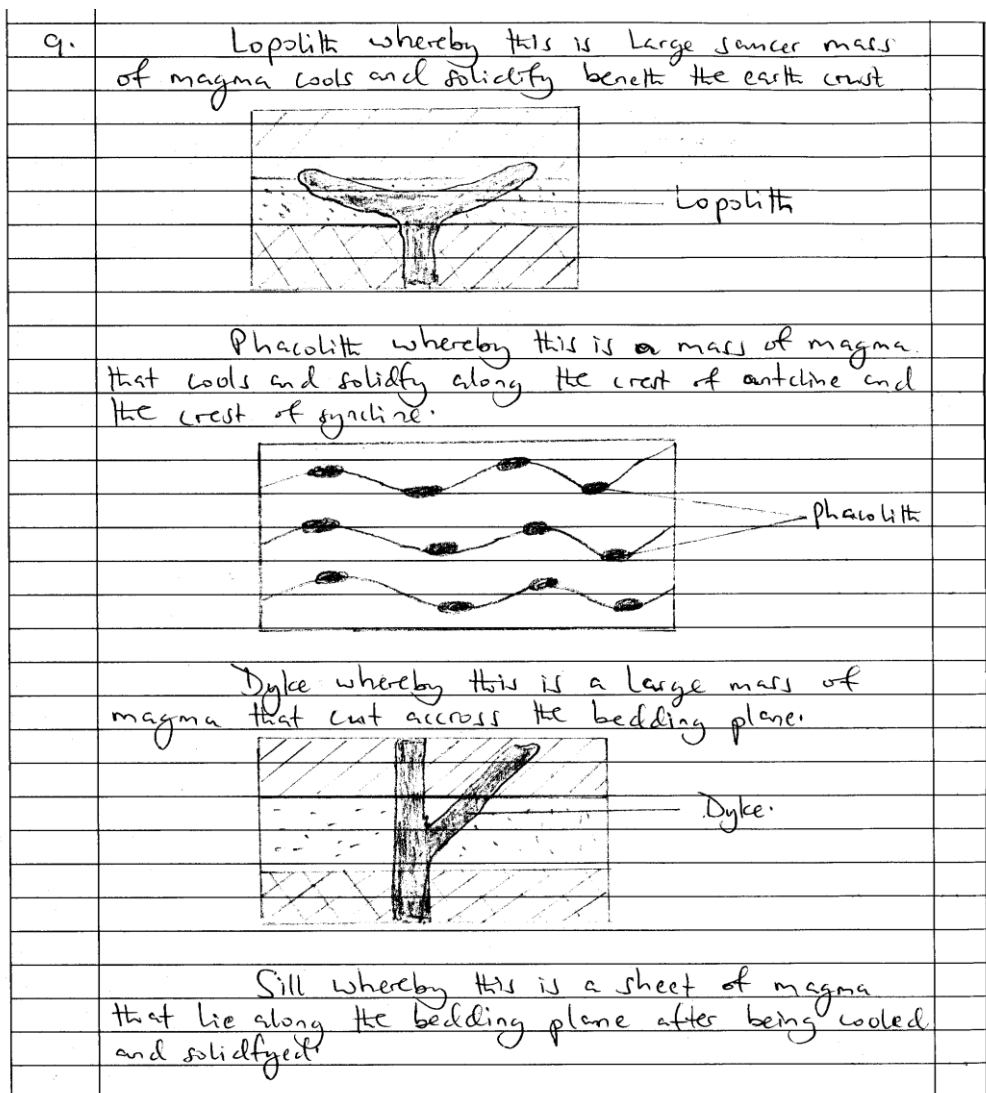 9. Lopolith whereby this is Large saucer mass
of magma cools and solidify beneth the earth crust
Lopolith
Phacolith whereby this is a mass of magma
that cools and solidfy along the crest of antcline and
the crest of syncline.
phacolith
Dyke whereby this is a large mass of
magma that cut accross the bedding plane.
Dyke.
Sill whereby this is a sheet of magma
that lie along the bedding plane after being cooled
and solidfyed.